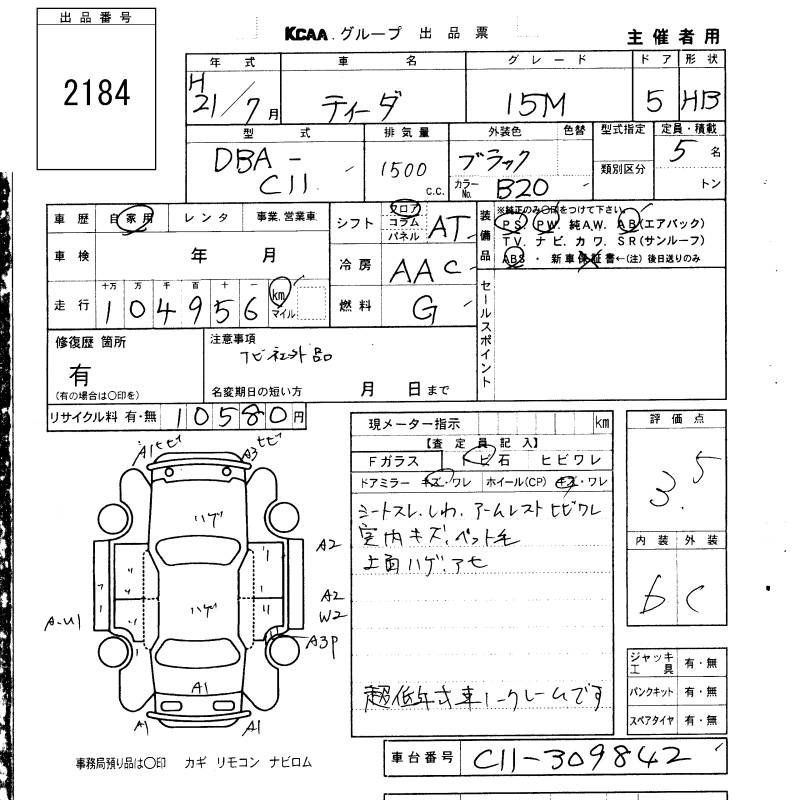 出品番号
2184
KCAA.グループ 出品票
主催者用
年式 車名 グレード ドア 形状
H21/7月 ティーダ 15M 5 HB
型式 排気量 外装色 色替 型式指定 定員・積載
DBA-C11 1500 c.c. ブラック 類別区分 5名
カラーNo. B20 トン
車歴 自家用 レンタ 事業.営業車
車検 年 月
走行 十万 万 千 百 十 一
104956 km マイル
シフト フロア コラム パネル AT
冷房 AAC
燃料 G
装備品 ※純正のみ○印をつけて下さい。
PS. PW. 純AW. AB(エアバック)
TV. ナビ. カワ. SR(サンルーフ)
ABS ・ 新車保証書←(注)後日送りのみ
セールスポイント
修復歴 箇所
有
(有の場合は○印を)
注意事項
ナビ社外品
名変期日の短い方 月 日まで
リサイクル料 有・無 10580円
現メーター指示 km
【査定員記入】
Fガラス トビ石 ヒビワレ
ドアミラー キズ・ワレ ホイール(CP) キズ・ワレ
シートスレ.しわ.アームレストヒビワレ
室内キズ.ペット毛
上面ハゲ.アセ
超低年式車ノークレームです
評価点
3.5
内装 外装
b C
A1ヒビ
A3ヒビ
ハゲ
A2
ハゲ
A2
W2
A-U1
A3P
A1
A1
A1
ジャッキ工具 有・無
パンクキット 有・無
スペアタイヤ 有・無
事務局預り品は○印 カギ リモコン ナビロム
車台番号 C11-309842